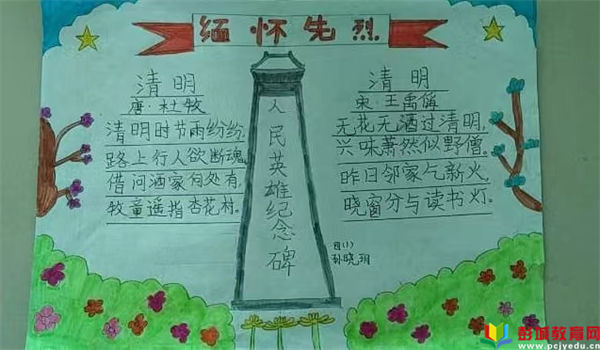 缅怀先烈
清明
唐·杜牧
清明时节雨纷纷,
路上行人欲断魂。
借问洒家何处有,
牧童遥指杏花村。
人民英雄纪念碑
清明
宋·王禹偁
无花无酒过清明,
兴味萧然似野僧。
昨日邻家乞新火,
晓窗分与读书灯。
四(1)
彭城教育网
www.pcjyedu.cn